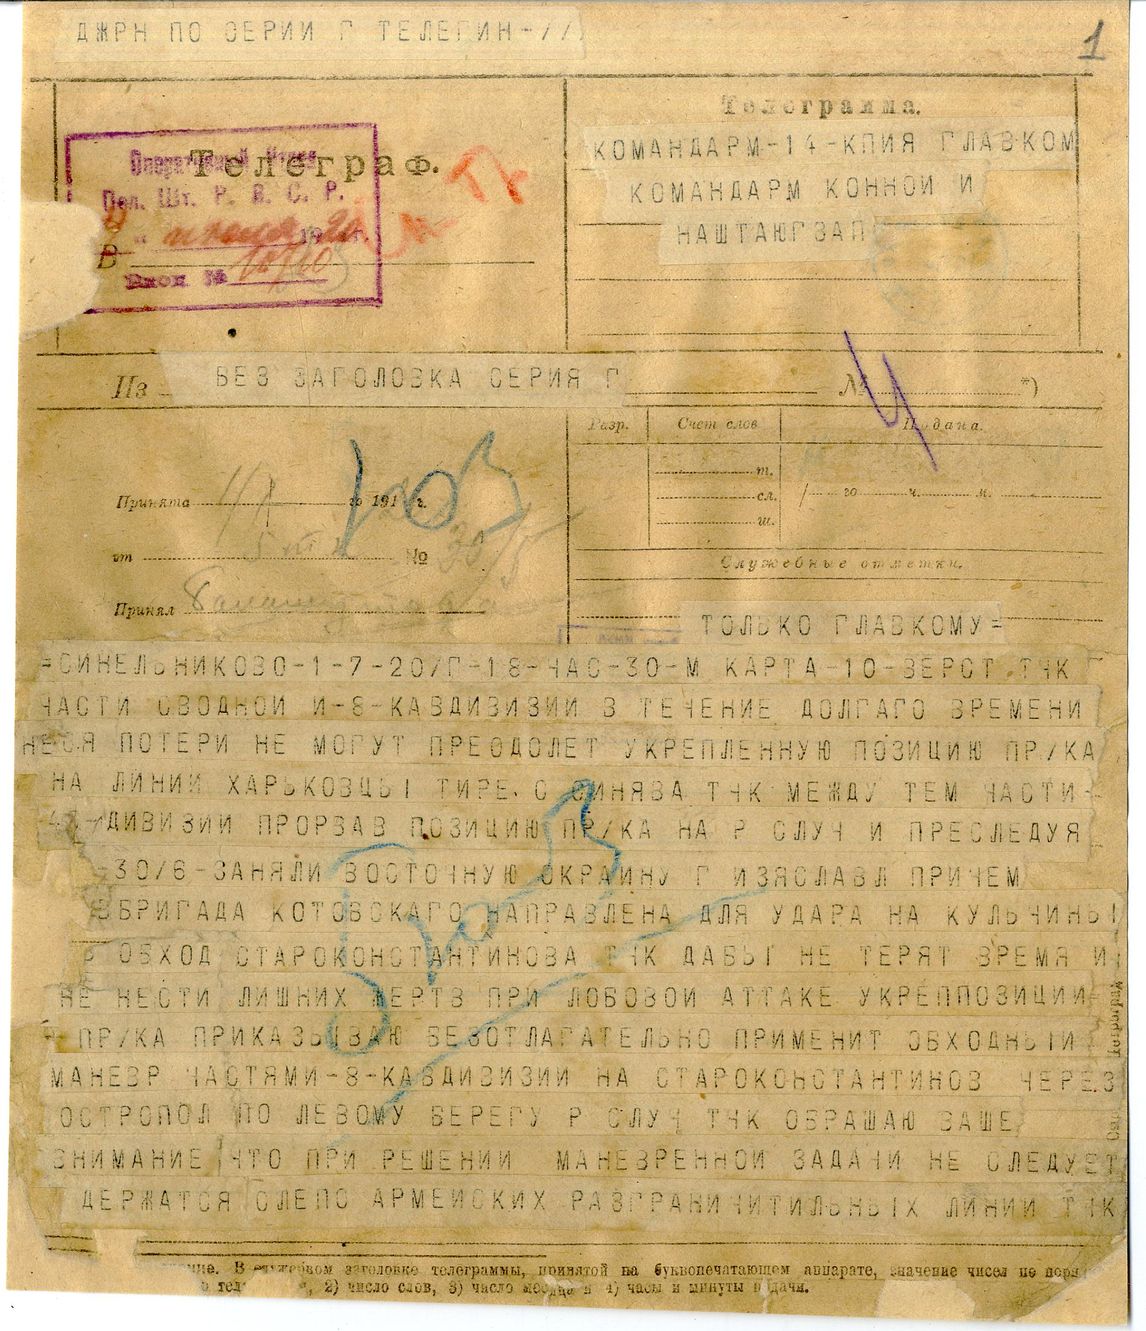 ДЖРН ПО СЕРИИ Г ТЕЛЕГИН-//
1
Телеграмма.
КОМАНДАРМ-14-КПИЯ ГЛАВКОМ
Телеграф.
Пол. Шт. Р. В. С. Р.
КОМАНДАРМ КОННОИ И
НАШТАЮГЗАП
В
Вход №
Из БЕЗ ЗАГОЛОВКА СЕРИЯ Г № *)
Разр. Счет слов Подана.
Принята го 191 г. т.
сл. го ч. м.
ш.
от №
Служебные отметки.
Принял
ТОЛЬКО ГЛАВКОМУ=
=СИНЕЛЬНИКОВО-1-7-20/Г-18-ЧАС-30-М КАРТА-10-ВЕРСТ ТЧК
ЧАСТИ СВОДНОИ И-8-КАВДИВИЗИИ В ТЕЧЕНИЕ ДОЛГАГО ВРЕМЕНИ
НЕСЯ ПОТЕРИ НЕ МОГУТ ПРЕОДОЛЕТ УКРЕПЛЕННУЮ ПОЗИЦИЮ ПР/КА
НА ЛИНИИ ХАРЬКОВЦЫ ТИРЕ. С СИНЯВА ТЧК МЕЖДУ ТЕМ ЧАСТИ-
ДИВИЗИИ ПРОРВАВ ПОЗИЦИЮ ПР/КА НА Р СЛУЧ И ПРЕСЛЕДУЯ
-30/6-ЗАНЯЛИ ВОСТОЧНУЮ ОКРАИНУ Г ИЗЯСЛАВЛ ПРИЧЕМ
БРИГАДА КОТОВСКАГО НАПРАВЛЕНА ДЛЯ УДАРА НА КУЛЬЧИНЫ
ОБХОД СТАРОКОНСТАНТИНОВА ТЧК ДАБЫ НЕ ТЕРЯТ ВРЕМЯ И
НЕ НЕСТИ ЛИШНИХ ЖЕРТВ ПРИ ЛОБОВОИ АТТАКЕ УКРЕППОЗИЦИИ
ПР/КА ПРИКАЗЫВАЮ БЕЗОТЛАГАТЕЛЬНО ПРИМЕНИТ ОБХОДНЫИ
МАНЕВР ЧАСТЯМИ-8-КАВДИВИЗИИ НА СТАРОКОНСТАНТИНОВ ЧЕРЕЗ
ОСТРОПОЛ ПО ЛЕВОМУ БЕРЕГУ Р СЛУЧ ТЧК ОБРАШАЮ ВАШЕ
ВНИМАНИЕ ЧТО ПРИ РЕШЕНИИ МАНЕВРЕННОИ ЗАДАЧИ НЕ СЛЕДУЕТ
ДЕРЖАТСЯ СЛЕПО АРМЕИСКИХ РАЗГРАНИЧИТИЛЬНЫХ ЛИНИИ ТЧК
В служебном заголовке телеграммы, принятой на буквопечатающем аппарате, значение чисел по
2) число слов, 3) число месяца и 4) часы и минуты подачи.